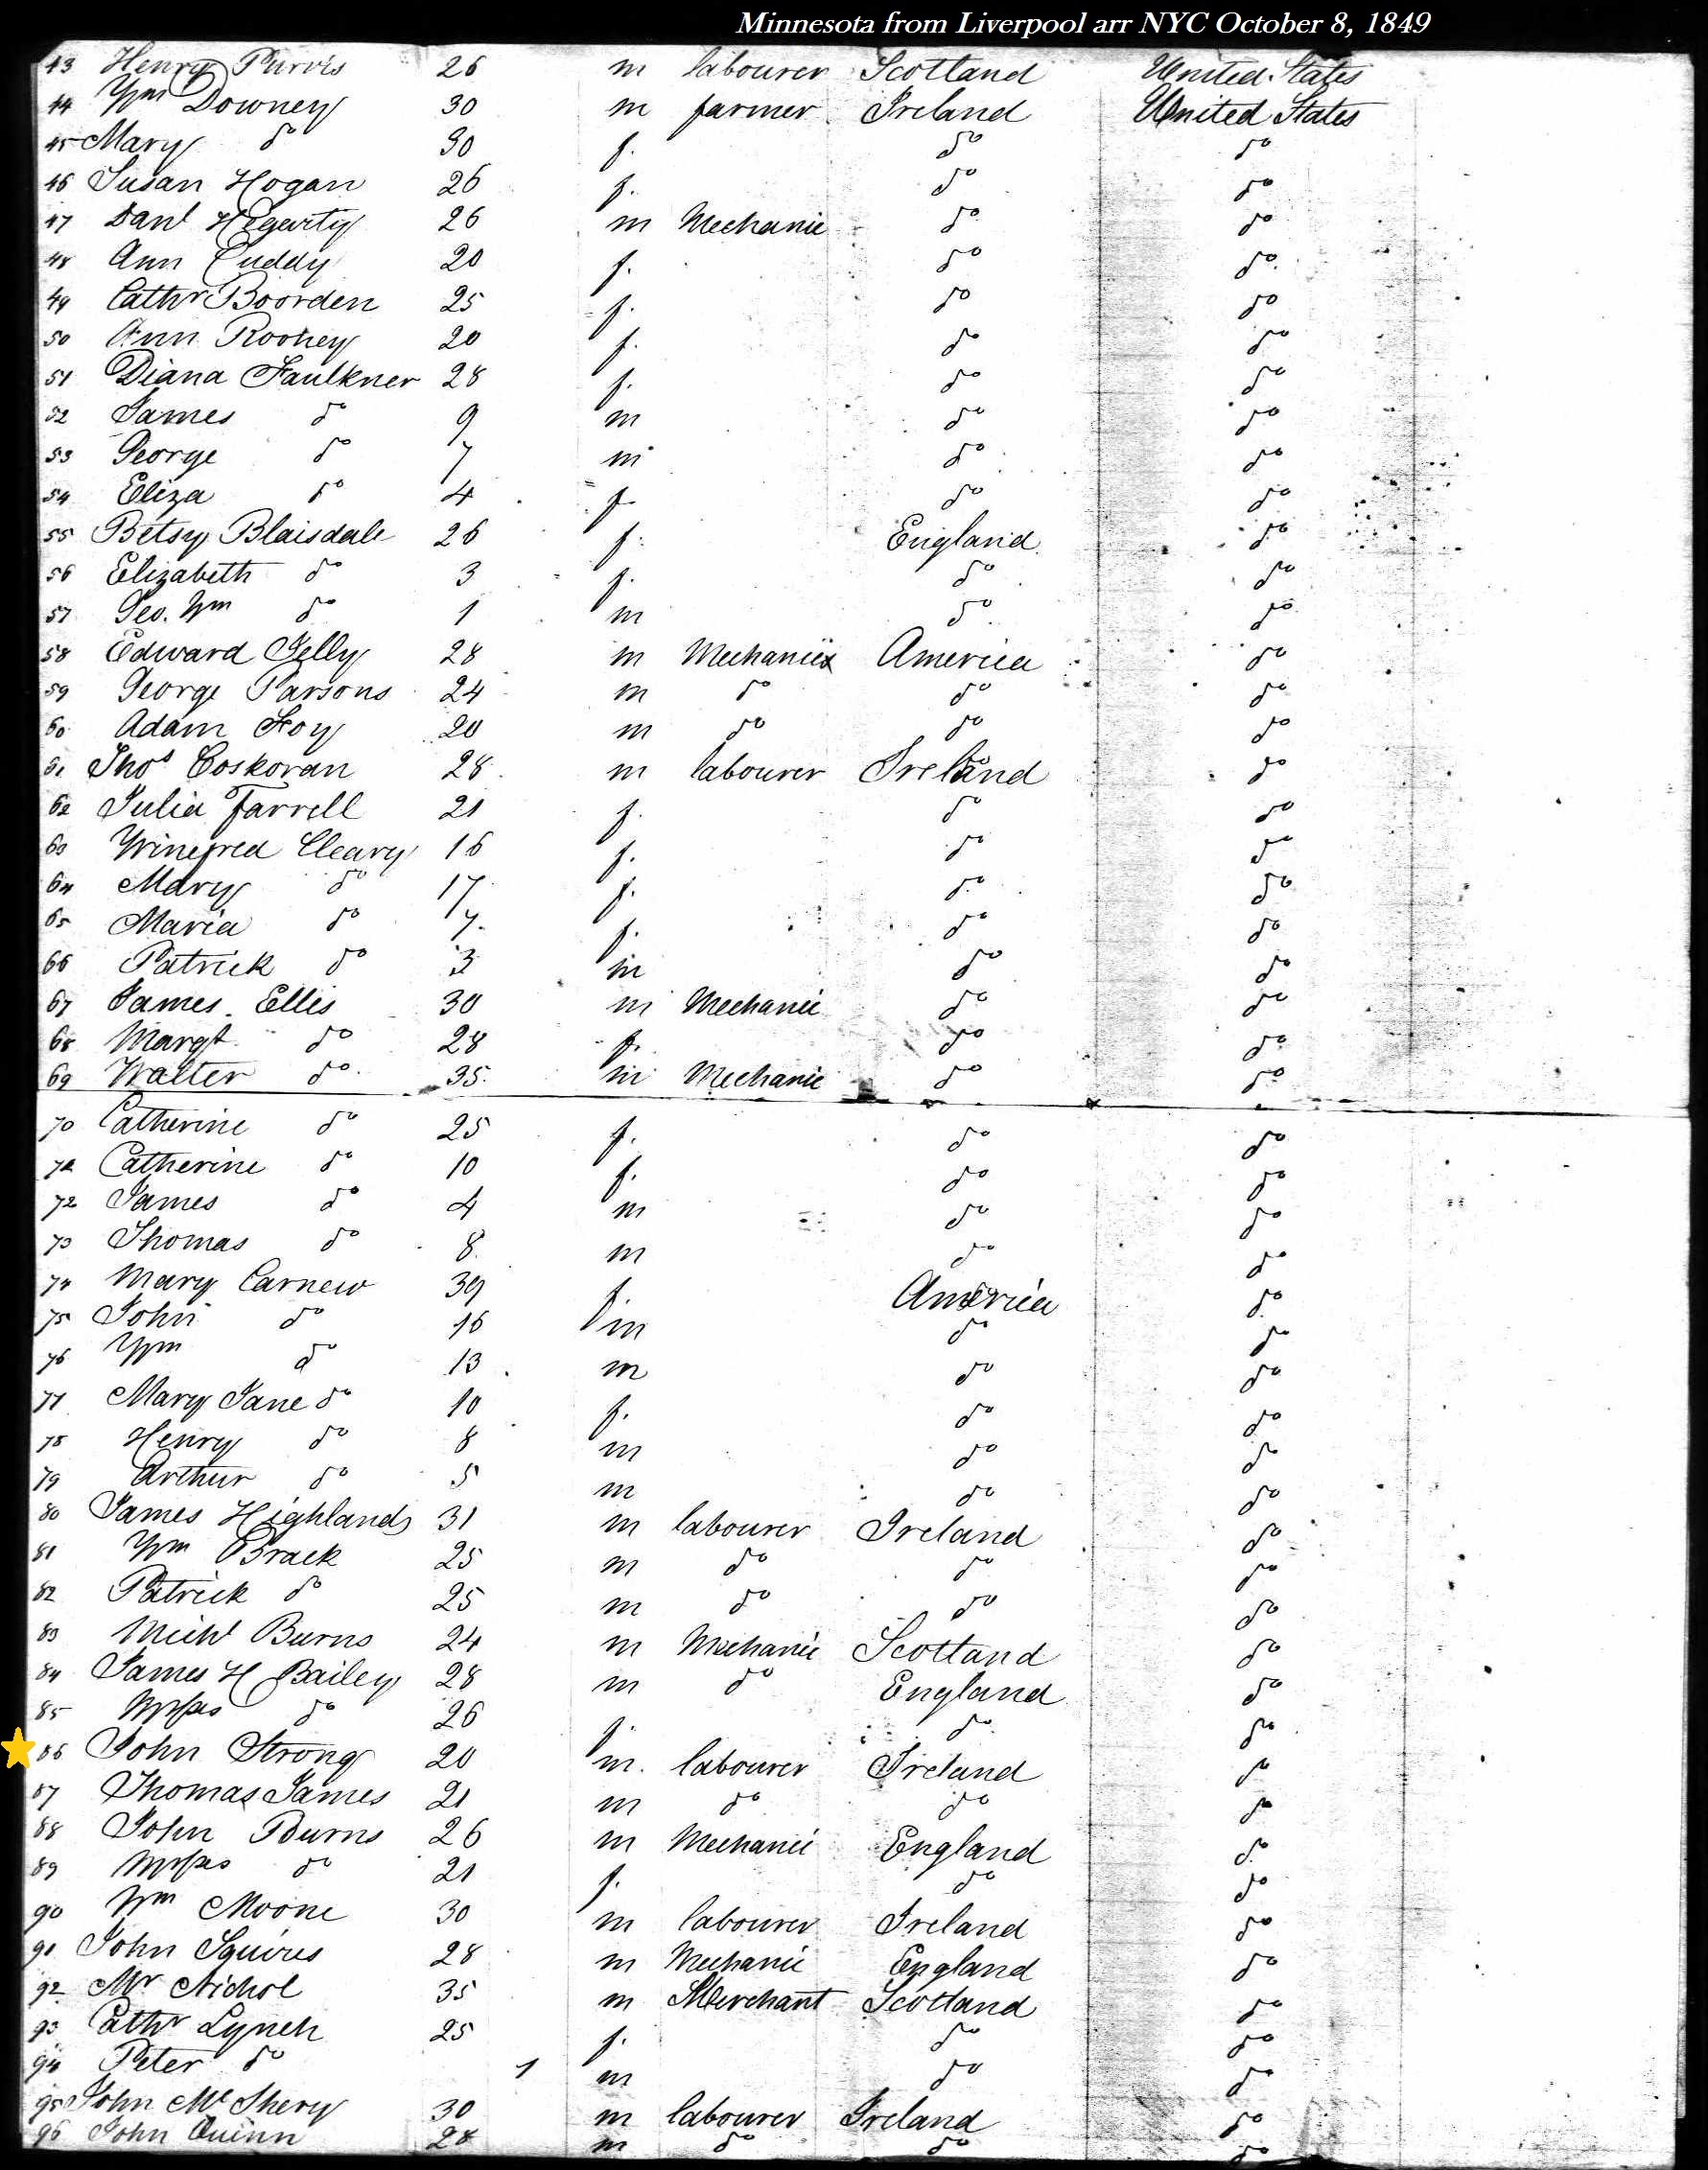 Minnesota from Liverpool arr NYC October 8, 1849
43 Henry Purvis 26 m labourer Scotland United States
44 Wm Downey 30 m farmer Ireland United States
45 Mary do 30 f. do do
46 Susan Hogan 26 f. do do
47 Danl Hegarty 26 m Mechanic do do
48 Ann Cuddy 20 f. do do
49 Cathr Boorden 25 f. do do
50 Ann Rooney 20 f. do do
51 Diana Faulkner 28 f. do do
52 James do 9 m do do
53 George do 7 m do do
54 Eliza do 4 f do do
55 Betsy Blaisdale 26 f. England do
56 Elizabeth do 3 f. do do
57 Geo. Wm do 1 m do do
58 Edward Jelly 28 m Mechanic America do
59 George Parsons 24 m do do do
60 Adam Foy 20 m do do do
61 Thos Coskoran 28 m labourer Ireland do
62 Julia Farrell 21 f. do do
63 Winefred Cleary 16 f. do do
64 Mary do 17 f. do do
65 Maria do 7 f. do do
66 Patrick do 3 m do do
67 James Ellis 30 m Mechanic do do
68 Margt do 28 f. do do
69 Walter do 35 m Mechanic do do
70 Catherine do 25 f. do do
71 Catherine do 10 f. do do
72 James do 4 m do do
73 Thomas do 8 m do do
74 Mary Carnew 39 f. America do
75 John do 16 m do do
76 Wm do 13 m do do
77 Mary Jane do 10 f. do do
78 Henry do 8 m do do
79 Arthur do 5 m do do
80 James Highlands 31 m labourer Ireland do
81 Wm Brack 25 m do do do
82 Patrick do 25 m do do do
83 Michl Burns 24 m Mechanic Scotland do
84 James H Bailey 28 m do England do
85 do 26 f. do do
86 John Strong 20 m. labourer Ireland do
87 Thomas James 21 m do do do
88 John Burns 26 m Mechanic England do
89 do 21 f. do do
90 Wm Moone 30 m labourer Ireland do
91 John Squires 28 m Mechanic England do
92 Mr Nichol 35 m Merchant Scotland do
93 Cathr Lynch 25 f. do do
94 Peter do 1 m do do
95 John McShery 30 m labourer Ireland do
96 John Quinn 28 m do do do